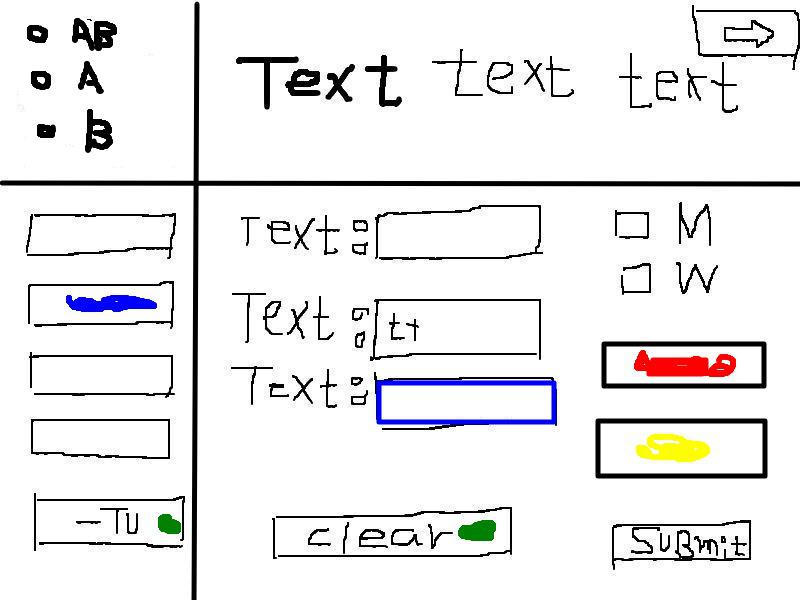 AB
A
B
Text text text
Text:
Text: tt
Text:
M
W
-TU
clear
SUBmit